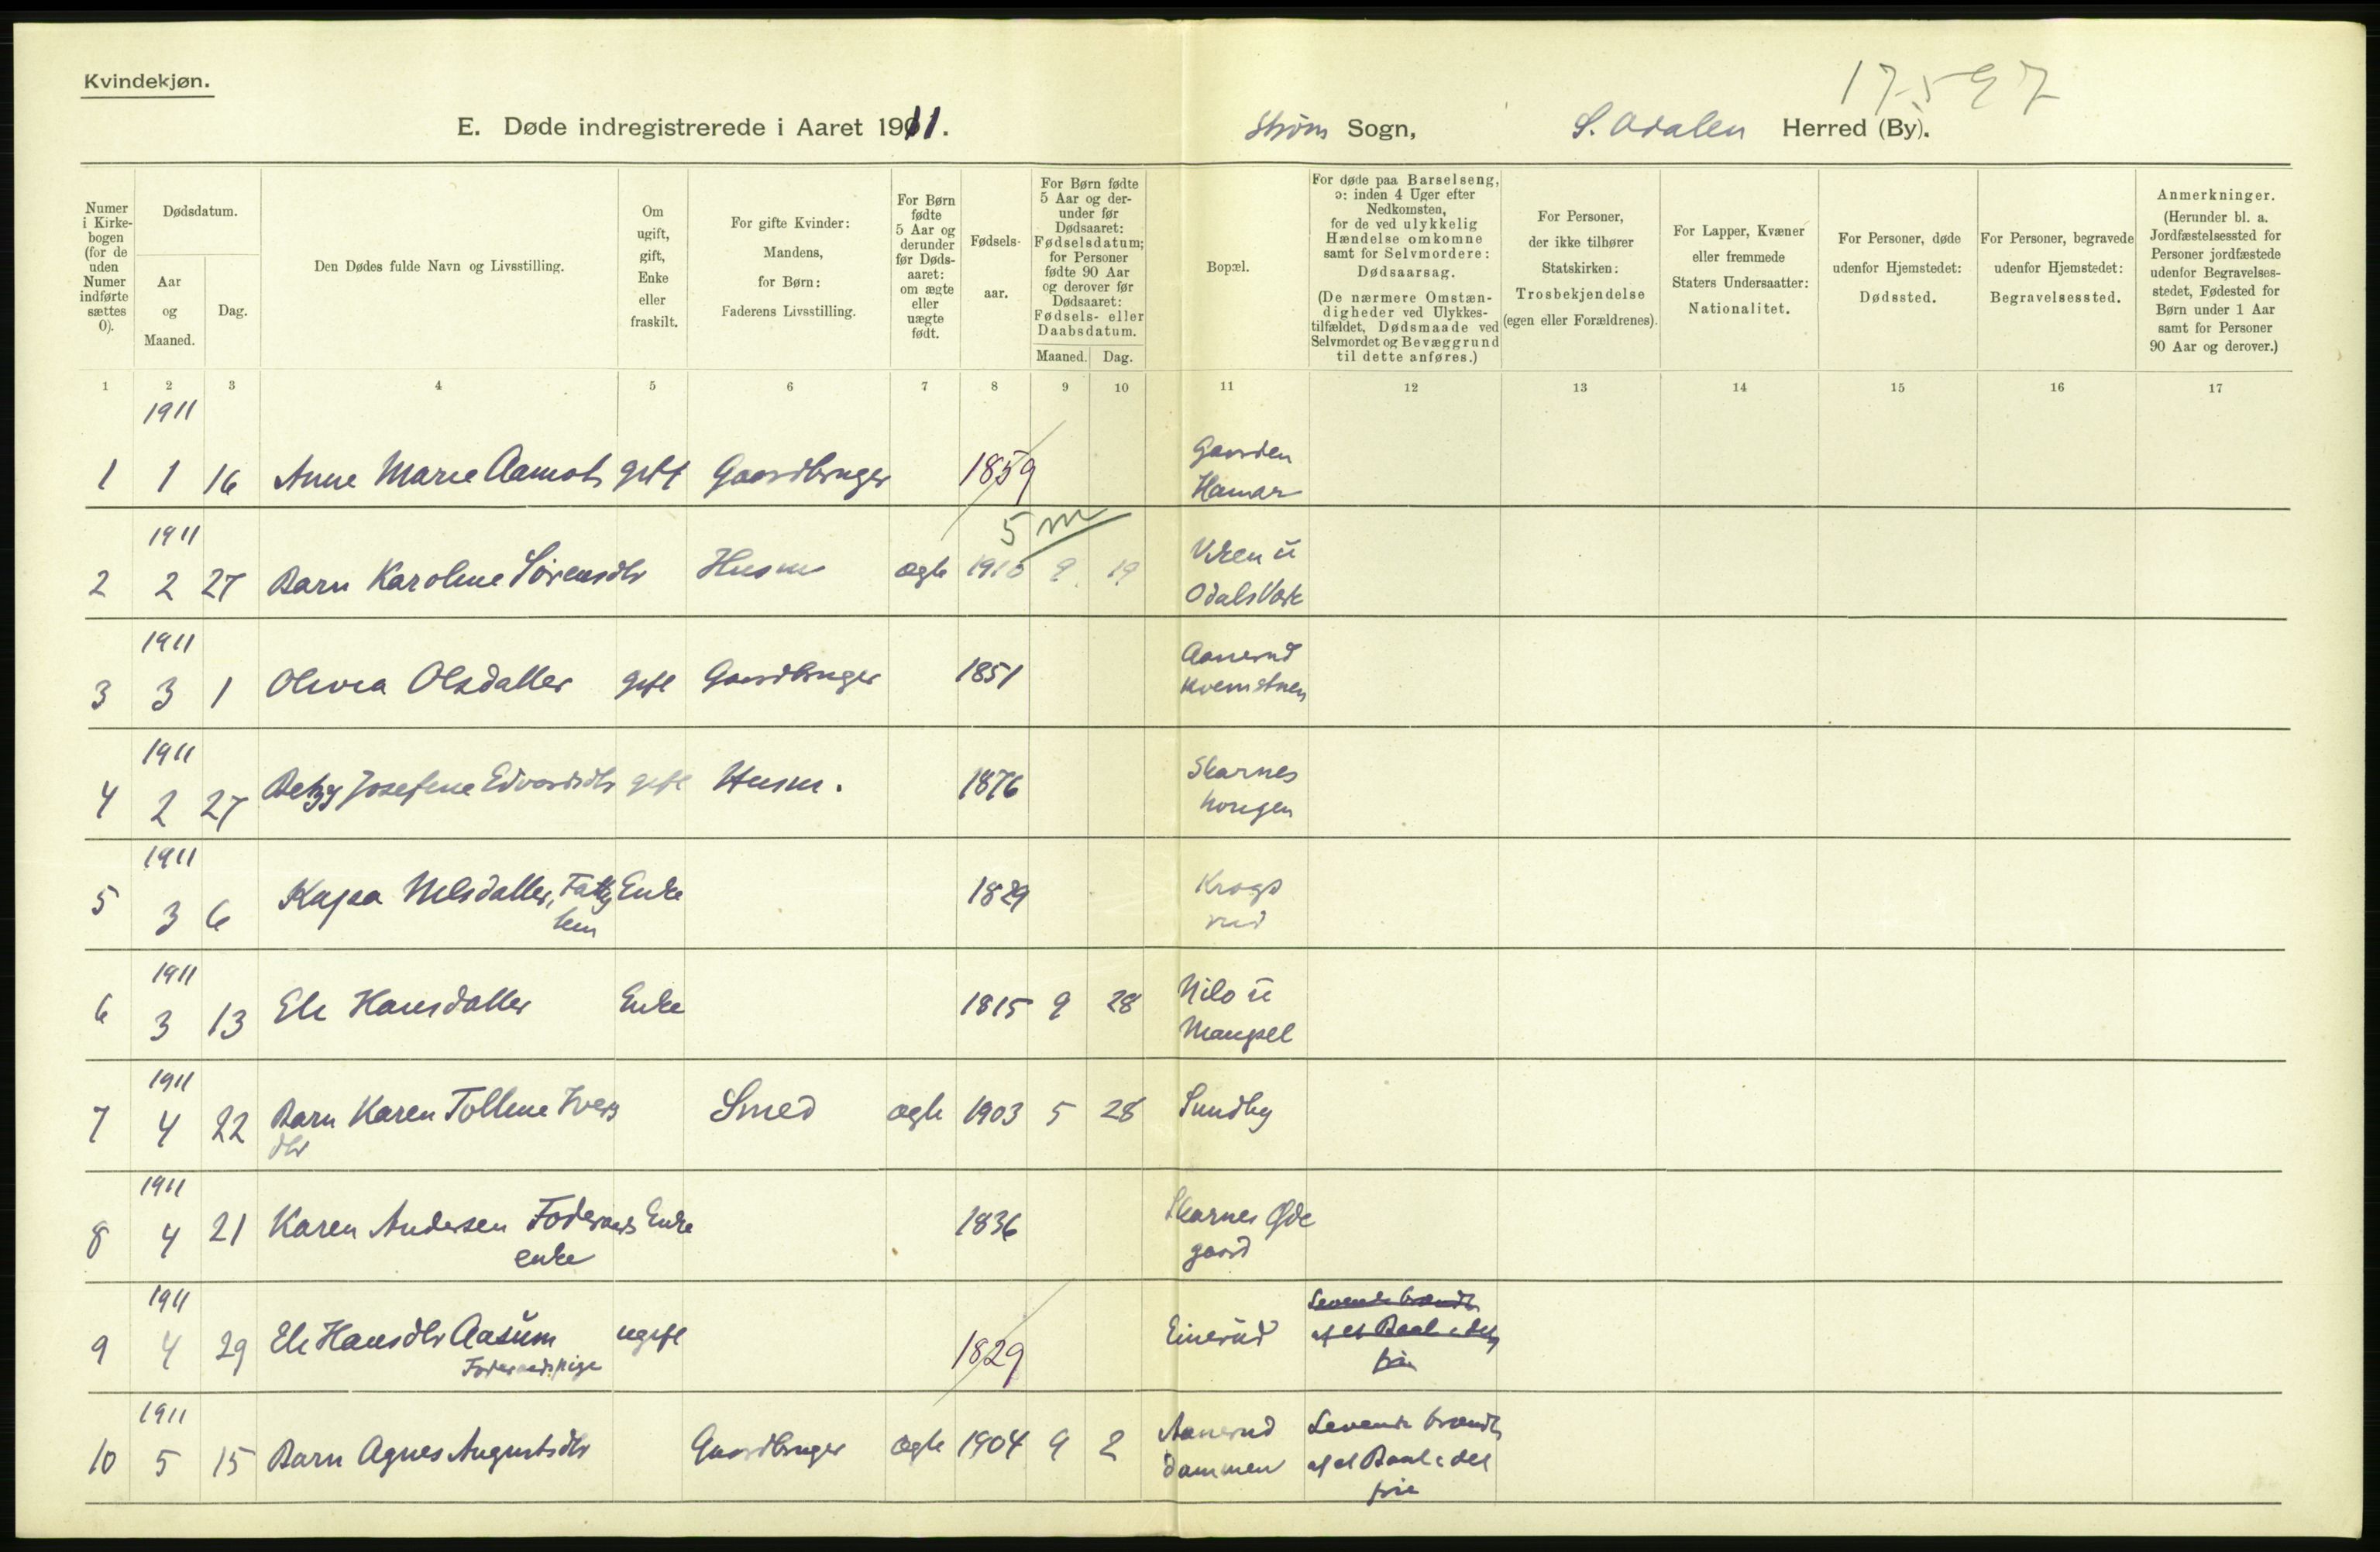 Kvindekjøn.
17-597
E. Døde indregistrerede i Aaret 1911.
Strøm Sogn, S. Odalen Herred (By).
Numer i Kirke-bogen (for de uden Numer indførte sættes 0).
Dødsdatum.
Aar og Maaned.
Dag.
Den Dødes fulde Navn og Livsstilling.
Om ugift, gift, Enke eller fraskilt.
For gifte Kvinder: Mandens, for Børn: Faderens Livsstilling.
For Børn fødte 5 Aar og derunder før Døds-aaret: om ægte eller uægte født.
Fødsels-aar.
For Børn fødte 5 Aar og der-under før Dødsaaret: Fødselsdatum; for Personer fødte 90 Aar og derover før Dødsaaret: Fødsels- eller Daabsdatum.
Maaned. Dag.
Bopæl.
For døde paa Barselseng, ɔ: inden 4 Uger efter Nedkomsten, for de ved ulykkelig Hændelse omkomne samt for Selvmordere: Dødsaarsag.
(De nærmere Omstæn-digheder ved Ulykkes-tilfældet, Dødsmaade ved Selvmordet og Bevæggrund til dette anføres.)
For Personer, der ikke tilhører Statskirken: Trosbekjendelse (egen eller Forældrenes).
For Lapper, Kvæner eller fremmede Staters Undersaatter: Nationalitet.
For Personer, døde udenfor Hjemstedet: Dødssted.
For Personer, begravede udenfor Hjemstedet: Begravelsessted.
Anmerkninger. (Herunder bl. a. Jordfæstelsessted for Personer jordfæstede udenfor Begravelses-stedet, Fødested for Børn under 1 Aar samt for Personer 90 Aar og derover.)
1 2 3 4 5 6 7 8 9 10 11 12 13 14 15 16 17
1911
1 1 16 Anne Marie Aamot gift Gaardbruger 1859 Gaarden
Hamar
5 m
1911
2 2 27 Barn Karoline Sørensdtr Husm ægte 1910 9 19 Viken u
Odals Værk
1911
3 3 1 Olivia Olsdatter gift Gaardbruger 1851 Aanerud
1911
4 2 27 Betzy Josefine Edvardsdtr gift Husm. 1876 Skarnes
1911
5 3 6 Kajsa Nilsdatter, Fattig Enke 1829 Krogs
lem rud
1911
6 3 13 Eli Hansdatter Enke 1815 9 28 Nilo u
Mangsel
1911
7 4 22 Barn Karen Tolline Ivers Smed ægte 1903 5 28 Sundby
dtr
1911
8 4 21 Karen Andersen Foderaads Enke 1836 Skarnes Øde
enke gaard
1911
9 4 29 Eli Hansdtr Aasum ugift 1829 Einerud Levende brændt
Foderaadspige af et Baal i det
frie
1911
10 5 15 Barn Agnes Augustsdtr Gaardbruger ægte 1904 9 2 Aanerud Levende brændt
dammen af et Baal i det
frie